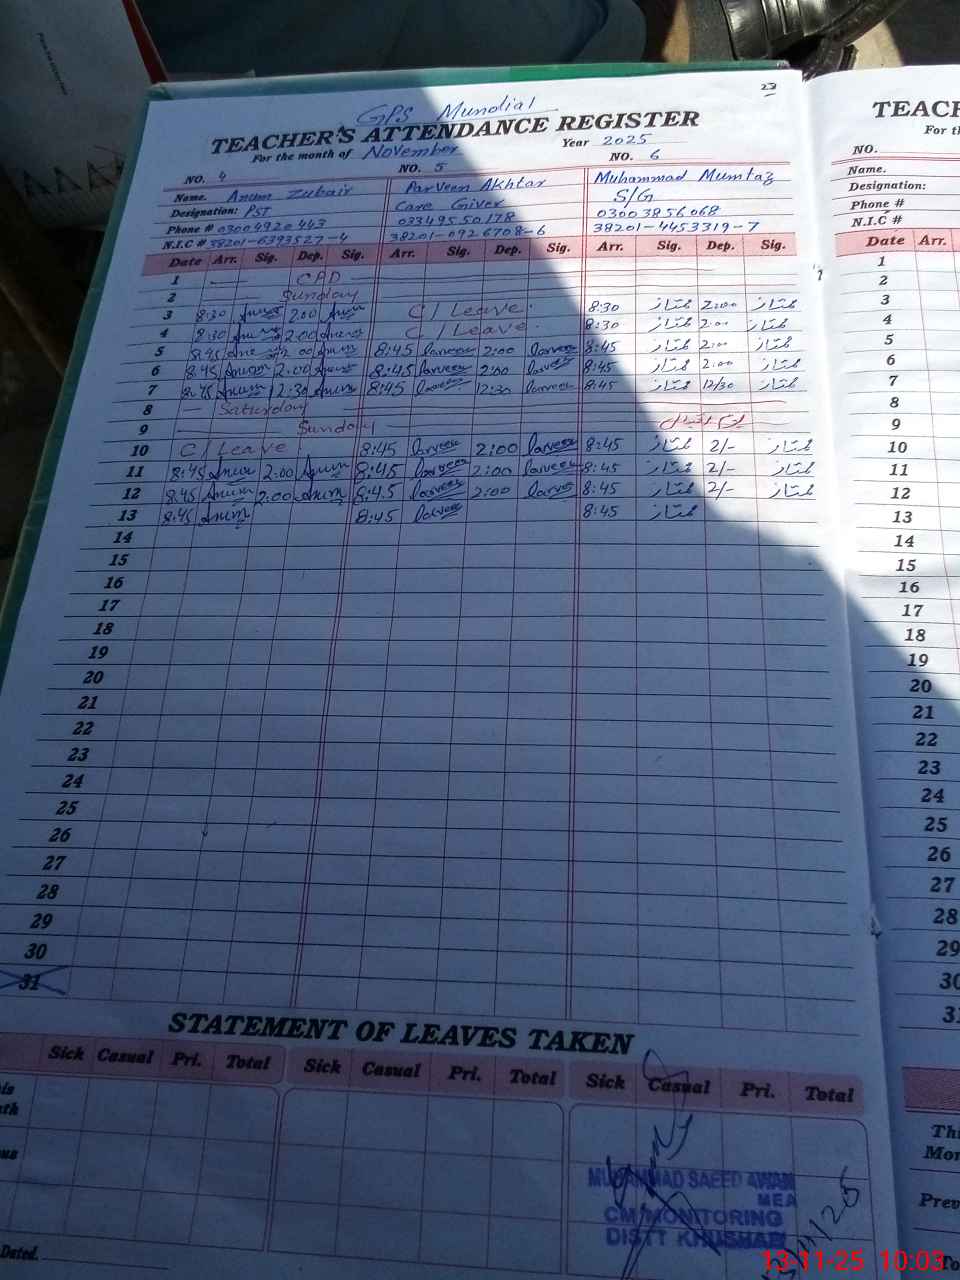 27
GPS Mundial
TEACHER'S ATTENDANCE REGISTER
For the month of November Year 2025
NO. 4 NO. 5 NO. 6
Name. Anum Zubair Parveen Akhtar Muhammad Mumtaz
Designation: PST Care Giver S/G
Phone # 03004920443 03349550178 03003856068
N.I.C # 38201-6393527-4 38201-0926708-6 38201-4453319-7
Date Arr. Sig. Dep. Sig. Arr. Sig. Dep. Sig. Arr. Sig. Dep. Sig.
1
2 Sunday
3 8:30 Anum 2:00 Anum C/Leave. 8:30 ممتاز 2:00 ممتاز
4 8:30 Anum 2:00 Anum C/Leave. 8:30 ممتاز 2:00 ممتاز
5 8:45 Anum 2:00 Anum 8:45 Parveen 2:00 Parveen 8:45 ممتاز 2:00 ممتاز
6 8:45 Anum 2:00 Anum 8:45 Parveen 2:00 Parveen 8:45 ممتاز 2:00 ممتاز
7 8:45 Anum 12:30 Anum 8:45 Parveen 12:30 Parveen 8:45 ممتاز 12/30 ممتاز
8 Saturday
9 Sunday
10 C/Leave 8:45 Parveen 2:00 Parveen 8:45 ممتاز 2/- ممتاز
11 8:45 Anum 2:00 Anum 8:45 Parveen 2:00 Parveen 8:45 ممتاز 2/- ممتاز
12 8:45 Anum 2:00 Anum 8:45 Parveen 2:00 Parveen 8:45 ممتاز 2/- ممتاز
13 8:45 Anum 8:45 Parveen 8:45 ممتاز
14
15
16
17
18
19
20
21
22
23
24
25
26
27
28
29
30
31
STATEMENT OF LEAVES TAKEN
Sick Casual Pri. Total Sick Casual Pri. Total Sick Casual Pri. Total
MUHAMMAD SAEED AWAN
MEA
CM MONITORING
DISTT KHUSHAB
Dated.
TEACH
For th
NO.
Name.
Designation:
Phone #
N.I.C #
Date Arr.
1
2
3
4
5
6
7
8
9
10
11
12
13
14
15
16
17
18
19
20
21
22
23
24
25
26
27
28
29
30
31
Thi
Mon
Prev
To
13-11-25 10:03